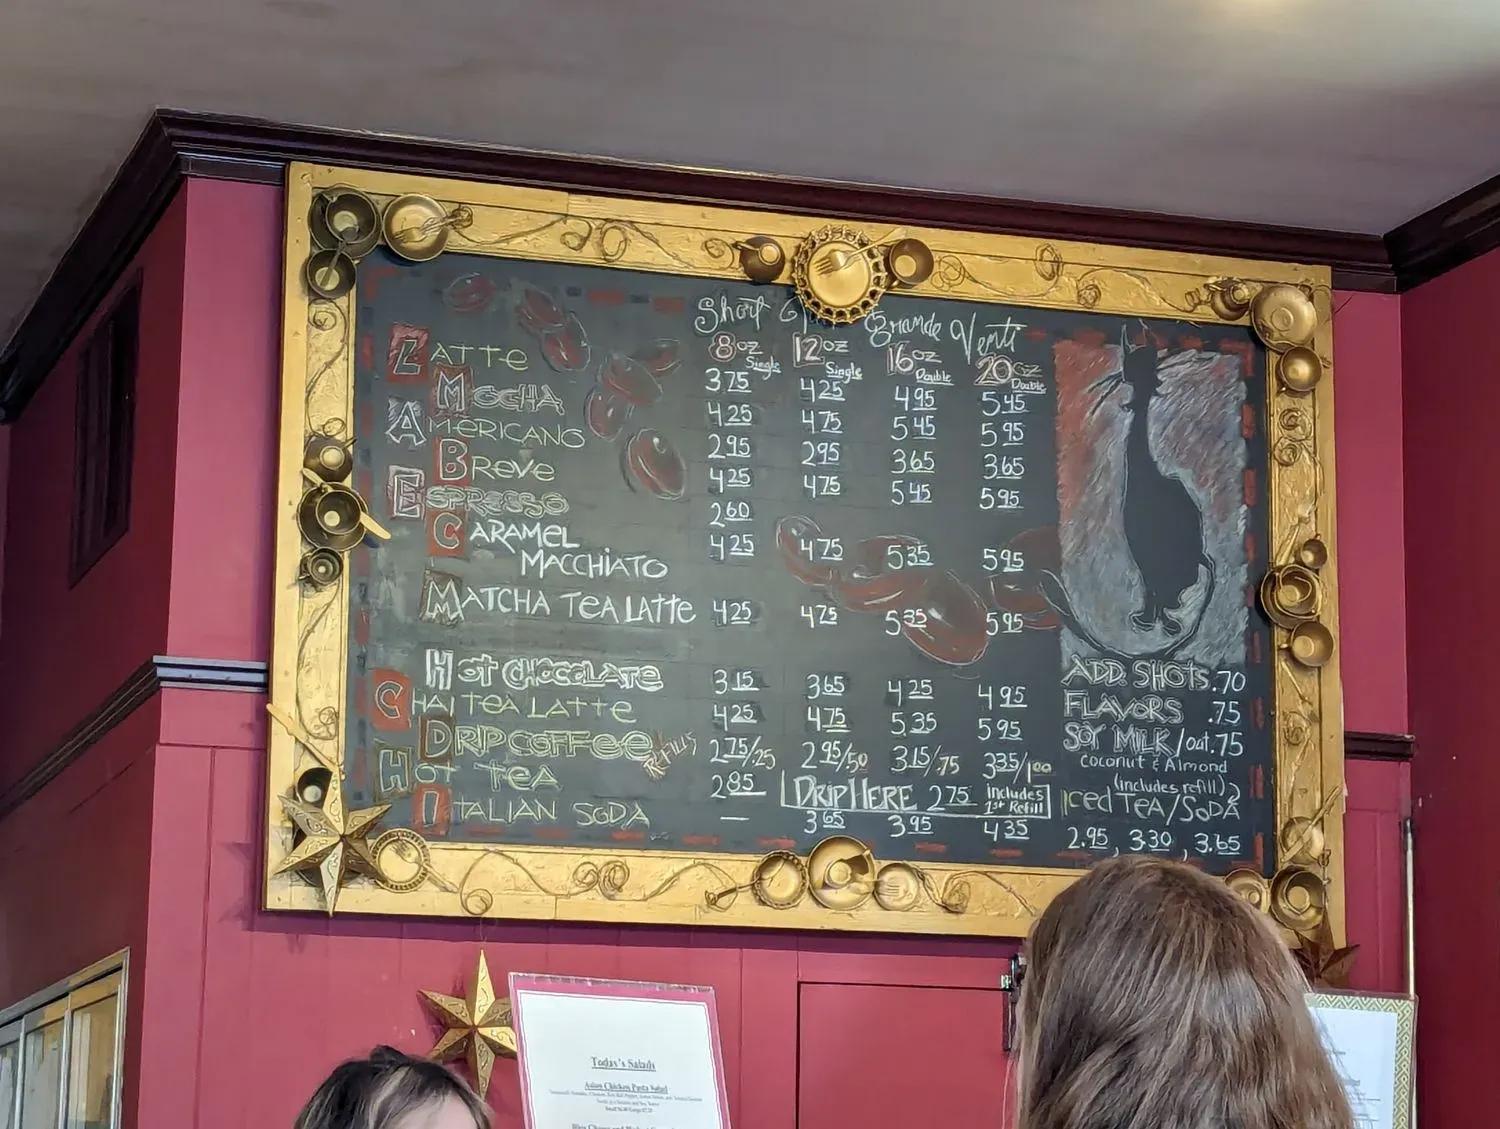 Short Grande Venti
8oz Single 12oz Single 16oz Double 20oz Double
LATTE 3.75 4.25 4.95 5.45
MOCHA 4.25 4.75 5.45 5.95
AMERICANO 2.95 2.95 3.65 3.65
BREVE 4.25 4.75 5.45 5.95
ESPRESSO 2.60
CARAMEL
MACCHIATO 4.25 4.75 5.35 5.95
MATCHA TEA LATTE 4.25 4.75 5.35 5.95
HOT CHOCOLATE 3.15 3.65 4.25 4.95
CHAI TEA LATTE 4.25 4.75 5.35 5.95
DRIP COFFEE REFILLS 2.75/.25 2.95/.50 3.15/.75 3.35/1.00
HOT TEA 2.85
DRIP HERE 2.75 includes 1st Refill
ITALIAN SODA — 3.65 3.95 4.35
ADD. SHOTS .70
FLAVORS .75
SOY MILK/oat .75
coconut & Almond
(includes refill)
ICED TEA/SODA
2.95, 3.30, 3.65
Today's Salads
Asian Chicken Pasta Salad